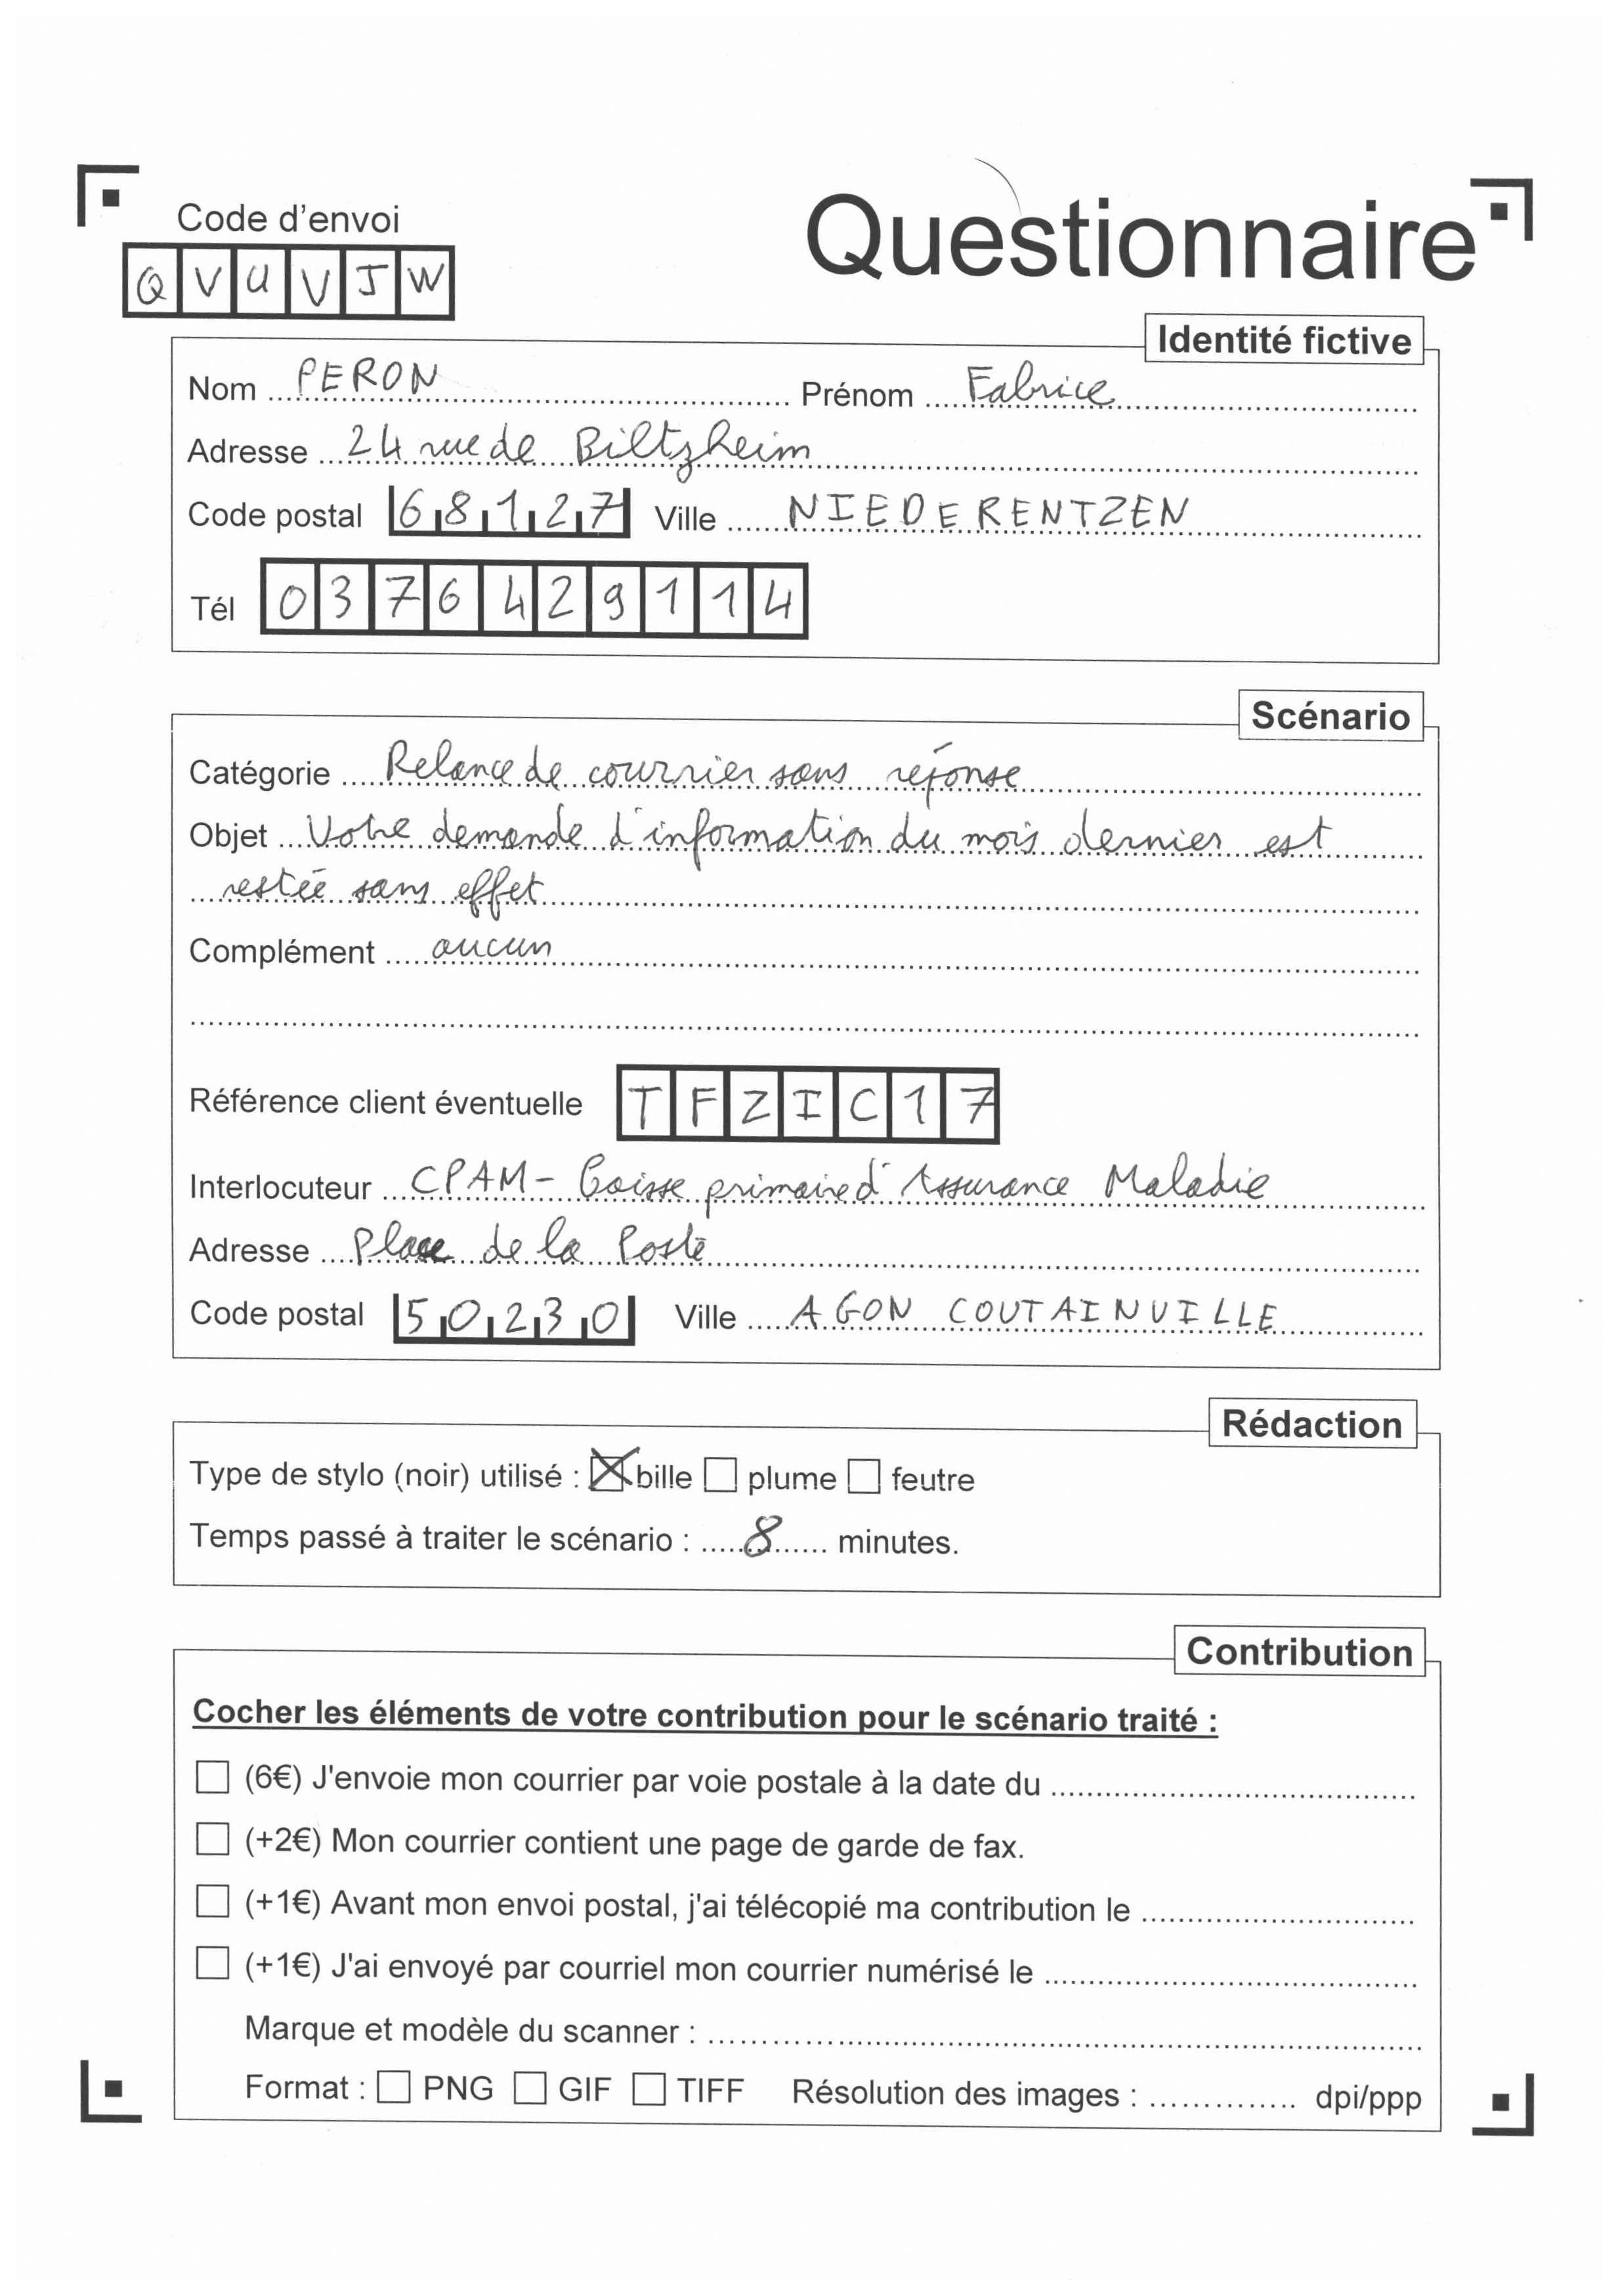 Code d'envoi
Questionnaire
QVUVJW
Identité fictive
Nom PERON Prénom Fabrice
Adresse 24 rue de Biltzheim
Code postal 68127 Ville NIEDERENTZEN
Tél 0376429114
Scénario
Catégorie Relance de courrier sans réponse
Objet Votre demande d'information du mois dernier est
restée sans effet
Complément aucun
Référence client éventuelle TFZIC17
Interlocuteur CPAM - Caisse primaire d'Assurance Maladie
Adresse Place de la Poste
Code postal 50230 Ville AGON COUTAINVILLE
Rédaction
Type de stylo (noir) utilisé : bille plume feutre
Temps passé à traiter le scénario : 8 minutes.
Contribution
Cocher les éléments de votre contribution pour le scénario traité :
(6€) J'envoie mon courrier par voie postale à la date du
(+2€) Mon courrier contient une page de garde de fax.
(+1€) Avant mon envoi postal, j'ai télécopié ma contribution le
(+1€) J'ai envoyé par courriel mon courrier numérisé le
Marque et modèle du scanner :
Format : PNG GIF TIFF Résolution des images : dpi/ppp